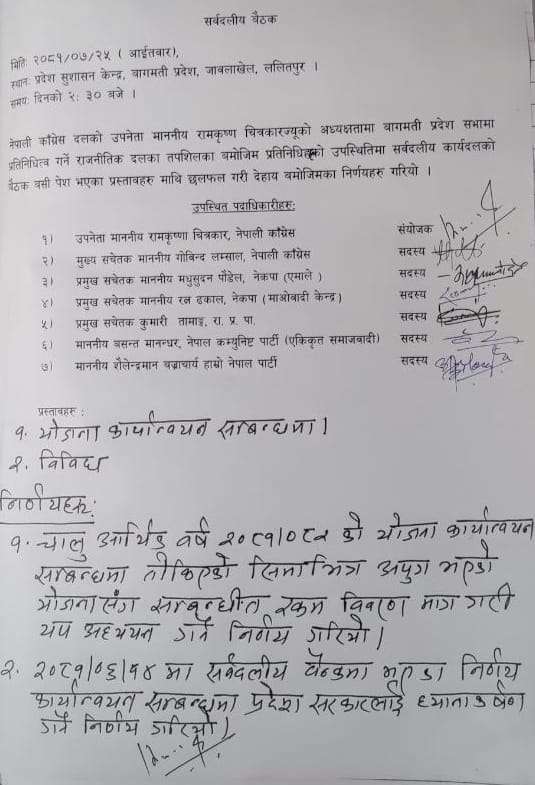 सर्वदलीय बैठक
मिति: २०८१/०७/२५ ( आईतवार),
स्थान: प्रदेश सुशासन केन्द्र, बागमती प्रदेश, जावलाखेल, ललितपुर ।
समय: दिनको २: ३० बजे ।
नेपाली काँग्रेस दलको उपनेता माननीय रामकृष्ण चित्रकारज्यूको अध्यक्षतामा बागमती प्रदेश सभामा
प्रतिनिधित्व गर्ने राजनीतिक दलका तपशिलका बमोजिम प्रतिनिधिहरूको उपस्थितिमा सर्वदलीय कार्यदलको
बैठक बसी पेश भएका प्रस्तावहरु माथि छलफल गरी देहाय बमोजिमका निर्णयहरु गरियो ।
उपस्थित पदाधिकारीहरु:
१) उपनेता माननीय रामकृष्णा चित्रकार, नेपाली काँग्रेस संयोजक
२) मुख्य सचेतक माननीय गोबिन्द लम्साल, नेपाली काँग्रेस सदस्य
३) प्रमुख सचेतक माननीय मधुसुदन पौडेल, नेकपा (एमाले ) सदस्य
४) प्रमुख सचेतक माननीय रत्न ढकाल, नेकपा (माओवादी केन्द्र ) सदस्य
५) प्रमुख सचेतक कुमारी तामाङ, रा. प्र. पा. सदस्य
६) माननीय बसन्त मानन्धर, नेपाल कम्युनिष्ट पार्टी (एकिकृत समाजवादी) सदस्य
७) माननीय शैलेन्द्रमान बज्राचार्य हाम्रो नेपाल पार्टी सदस्य
प्रस्तावहरु :
१. योजना कार्यान्वयन सम्बन्धमा।
२. विविध
निर्णयहरु:
१. चालु आर्थिक वर्ष २०८१/०८२ को योजना कार्यान्वयन
सम्बन्धमा तोकिएको सिमाभित्र अपुग भएको
योजना संग सम्बन्धीत रकम विवरण माग गरी
थप अध्ययन गर्ने निर्णय गरियो।
२. २०८१/०६/१४ मा सर्वदलीय बैठकमा भएका निर्णय
कार्यान्वयन सम्बन्धमा प्रदेश सरकारलाई ध्यानाकर्षण
गर्ने निर्णय गरियो।